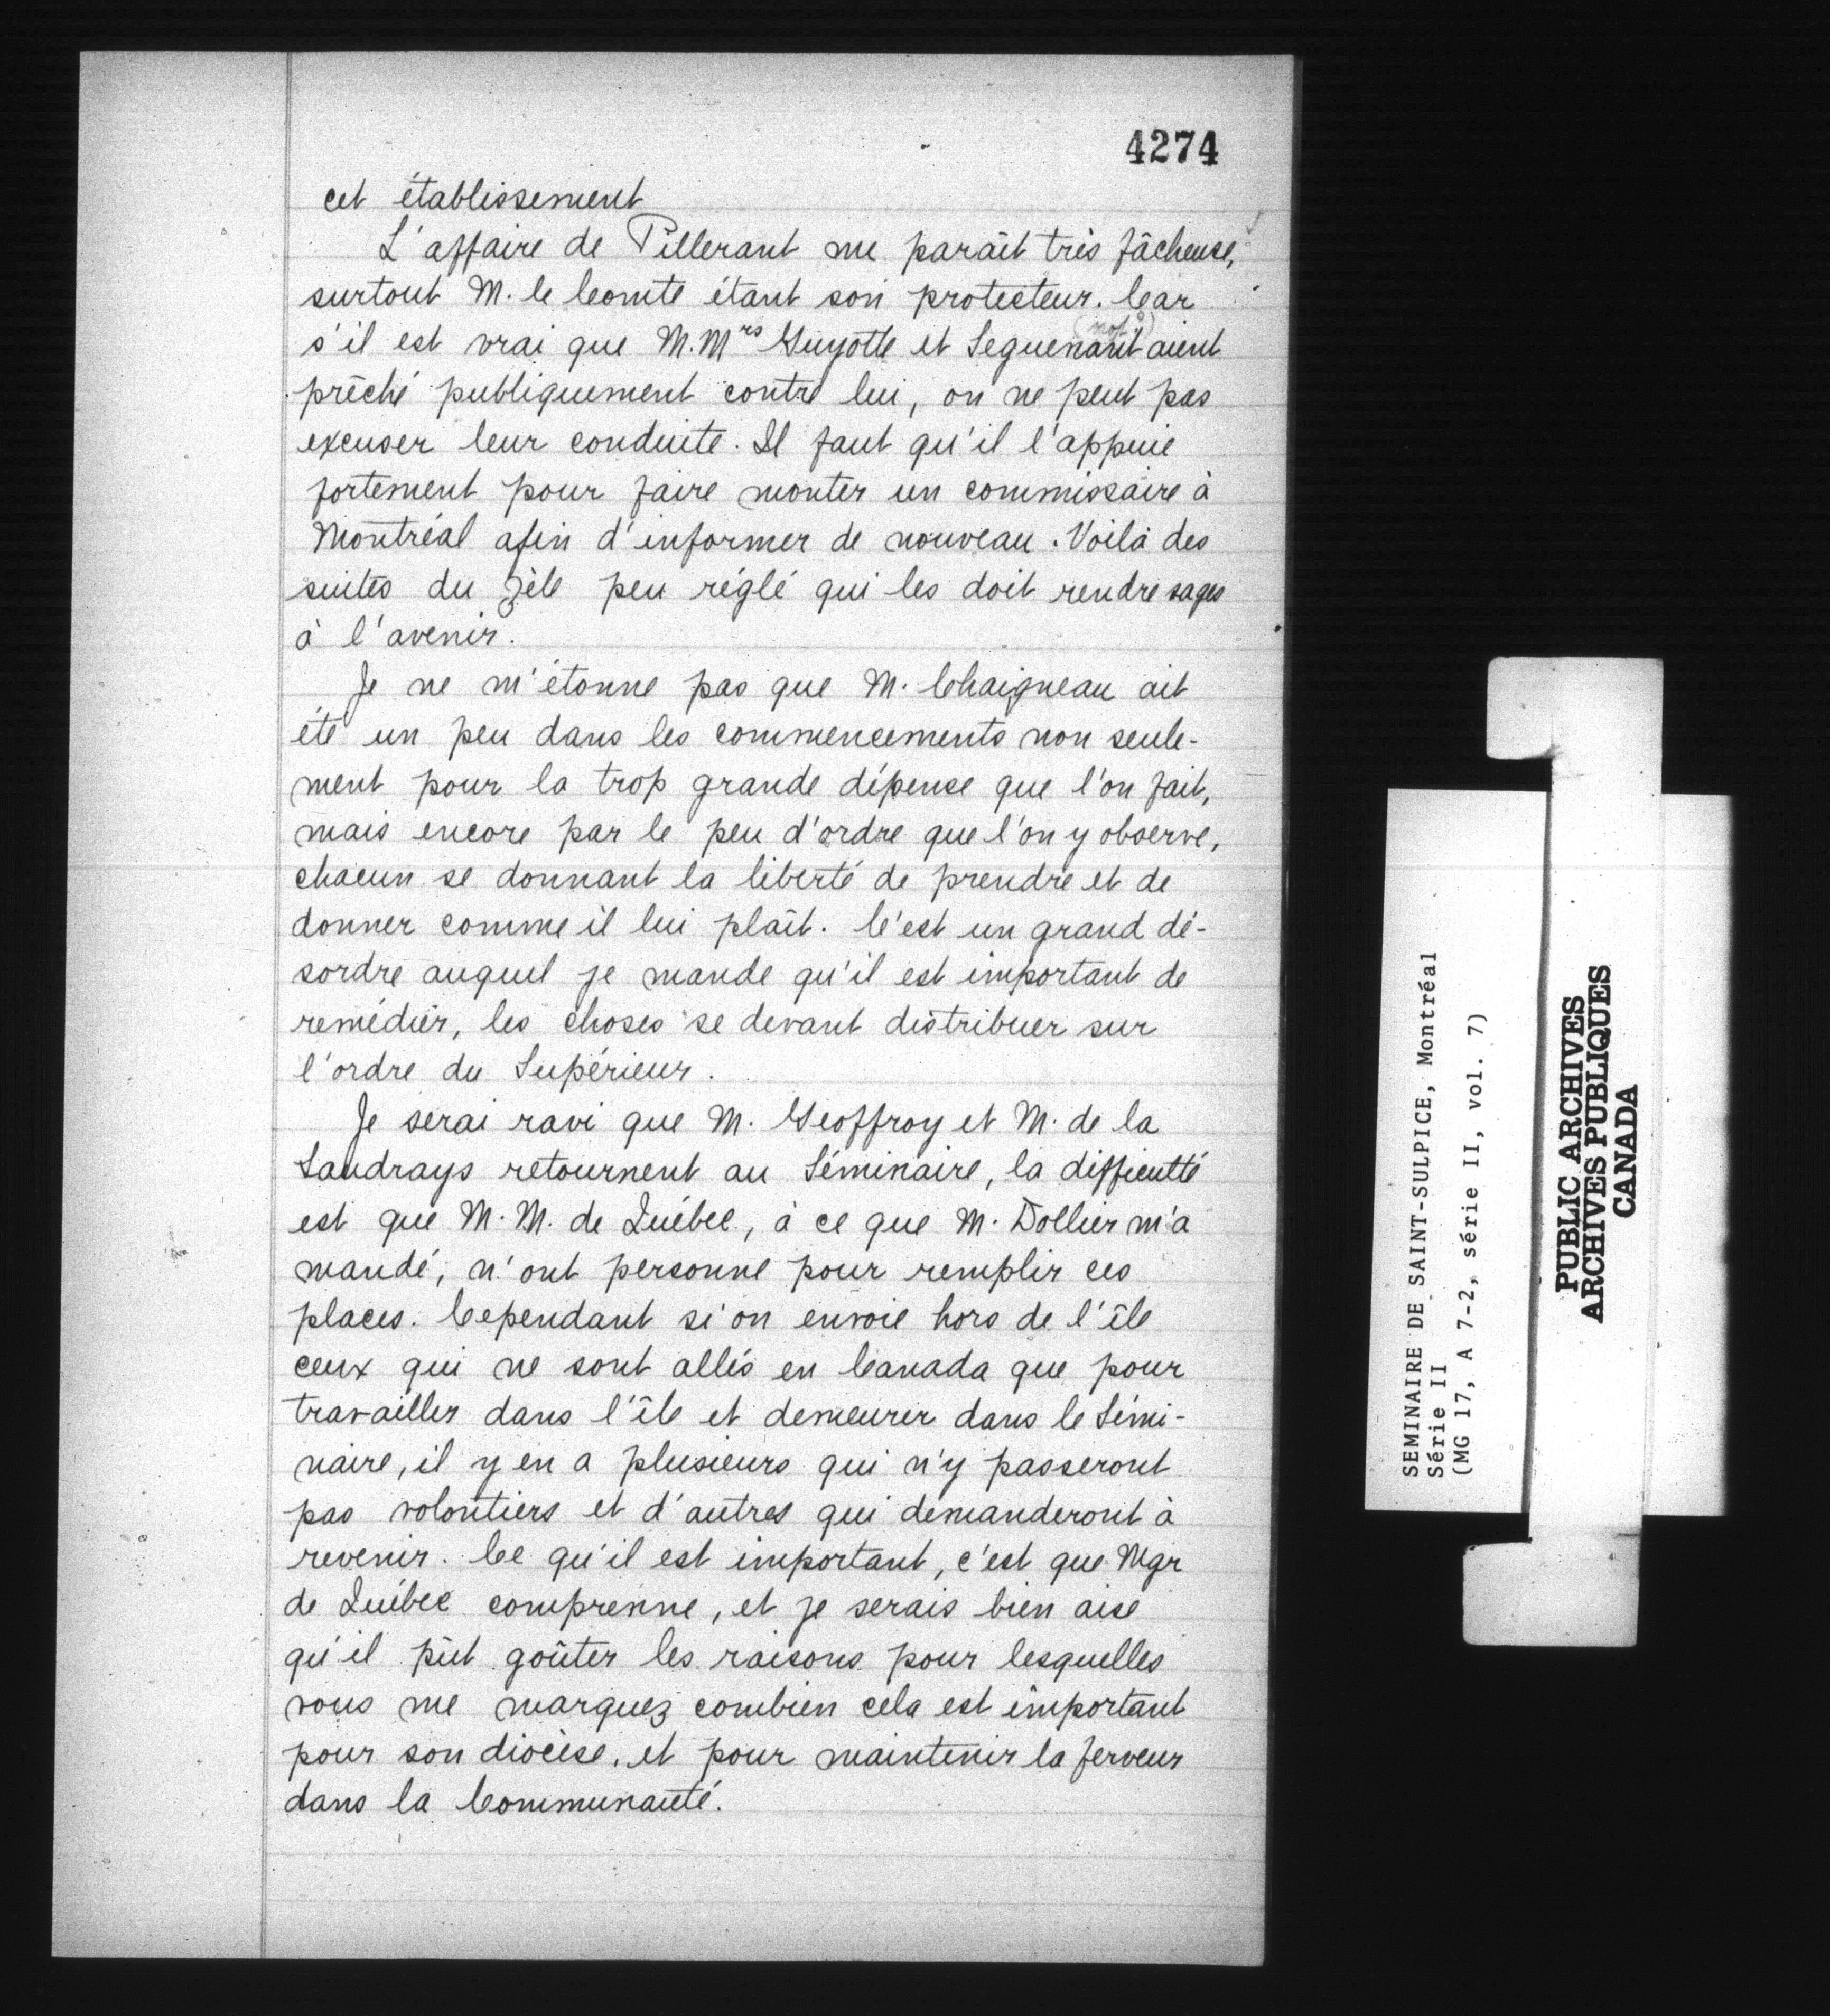 4274
cet établissement
L'affaire de Pillerant me paraît très fâcheuse,
surtout M. le Comte étant son protecteur. Car
s'il est vrai que M.Mrs Guyotte et Seguenant aient
prêché publiquement contre lui, on ne peut pas
excuser leur conduite. Il faut qu'il l'appuie
fortement pour faire monter un commissaire à
Montréal afin d'informer de nouveau. Voilà des
suites du zèle peu réglé qui les doit rendre sages
à l'avenir.
Je ne m'étonne pas que M. Chaigneau ait
été un peu dans les commencements non seule-
ment pour la trop grande dépense que l'on fait,
mais encore par le peu d'ordre que l'on y observe,
chacun se donnant la liberté de prendre et de
donner comme il lui plaît. C'est un grand dé-
sordre auquel je mande qu'il est important de
remédier, les choses se devant distribuer sur
l'ordre du Supérieur.
Je serai ravi que M. Geoffroy et M. de la
Saudrays retournent au Séminaire, la difficulté
est que M.M. de Québec, à ce que M. Dollier m'a
mandé, n'ont personne pour remplir ces
places. Cependant si on envoie hors de l'île
ceux qui ne sont allés en Canada que pour
travailler dans l'île et demeurer dans le Sémi-
naire, il y en a plusieurs qui n'y passeront
pas volontiers et d'autres qui demanderont à
revenir. Ce qu'il est important, c'est que Mgr
de Québec comprenne, et je serais bien aise
qu'il pût goûter les raisons pour lesquelles
vous me marquez combien cela est important
pour son diocèse, et pour maintenir la ferveur
dans la Communauté.
SEMINAIRE DE SAINT-SULPICE, Montréal
Série II
(MG 17, A 7-2, série II, vol. 7)
PUBLIC ARCHIVES
ARCHIVES PUBLIQUES
CANADA